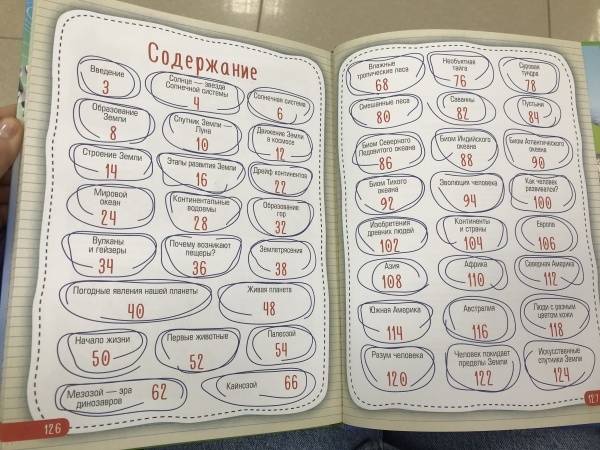 Содержание
Введение
3
Солнце — звезда
Солнечной системы
4
Солнечная система
6
Образование
Земли
8
Спутник Земли —
Луна
10
Движение Земли
в космосе
12
Строение Земли
14
Этапы развития Земли
16
Дрейф континентов
22
Мировой
океан
24
Континентальные
водоемы
28
Образование
гор
32
Вулканы
и гейзеры
34
Почему возникают
пещеры?
36
Землетрясения
38
Погодные явления нашей планеты
40
Живая планета
48
Начало жизни
50
Первые животные
52
Палеозой
54
Мезозой — эра
динозавров
62
Кайнозой
66
126
Влажные
тропические леса
68
Необъятная
тайга
76
Суровая
тундра
78
Смешанные леса
80
Саванны
82
Пустыни
84
Биом Северного
Ледовитого океана
86
Биом Индийского
океана
88
Биом Атлантического
океана
90
Биом Тихого
океана
92
Эволюция человека
94
Как человек
развивался?
100
Изобретения
древних людей
102
Континенты
и страны
104
Европа
106
Азия
108
Африка
110
Северная Америка
112
Южная Америка
114
Австралия
116
Люди с разным
цветом кожи
118
Разум человека
120
Человек покидает
пределы Земли
122
Искусственные
спутники Земли
124
127